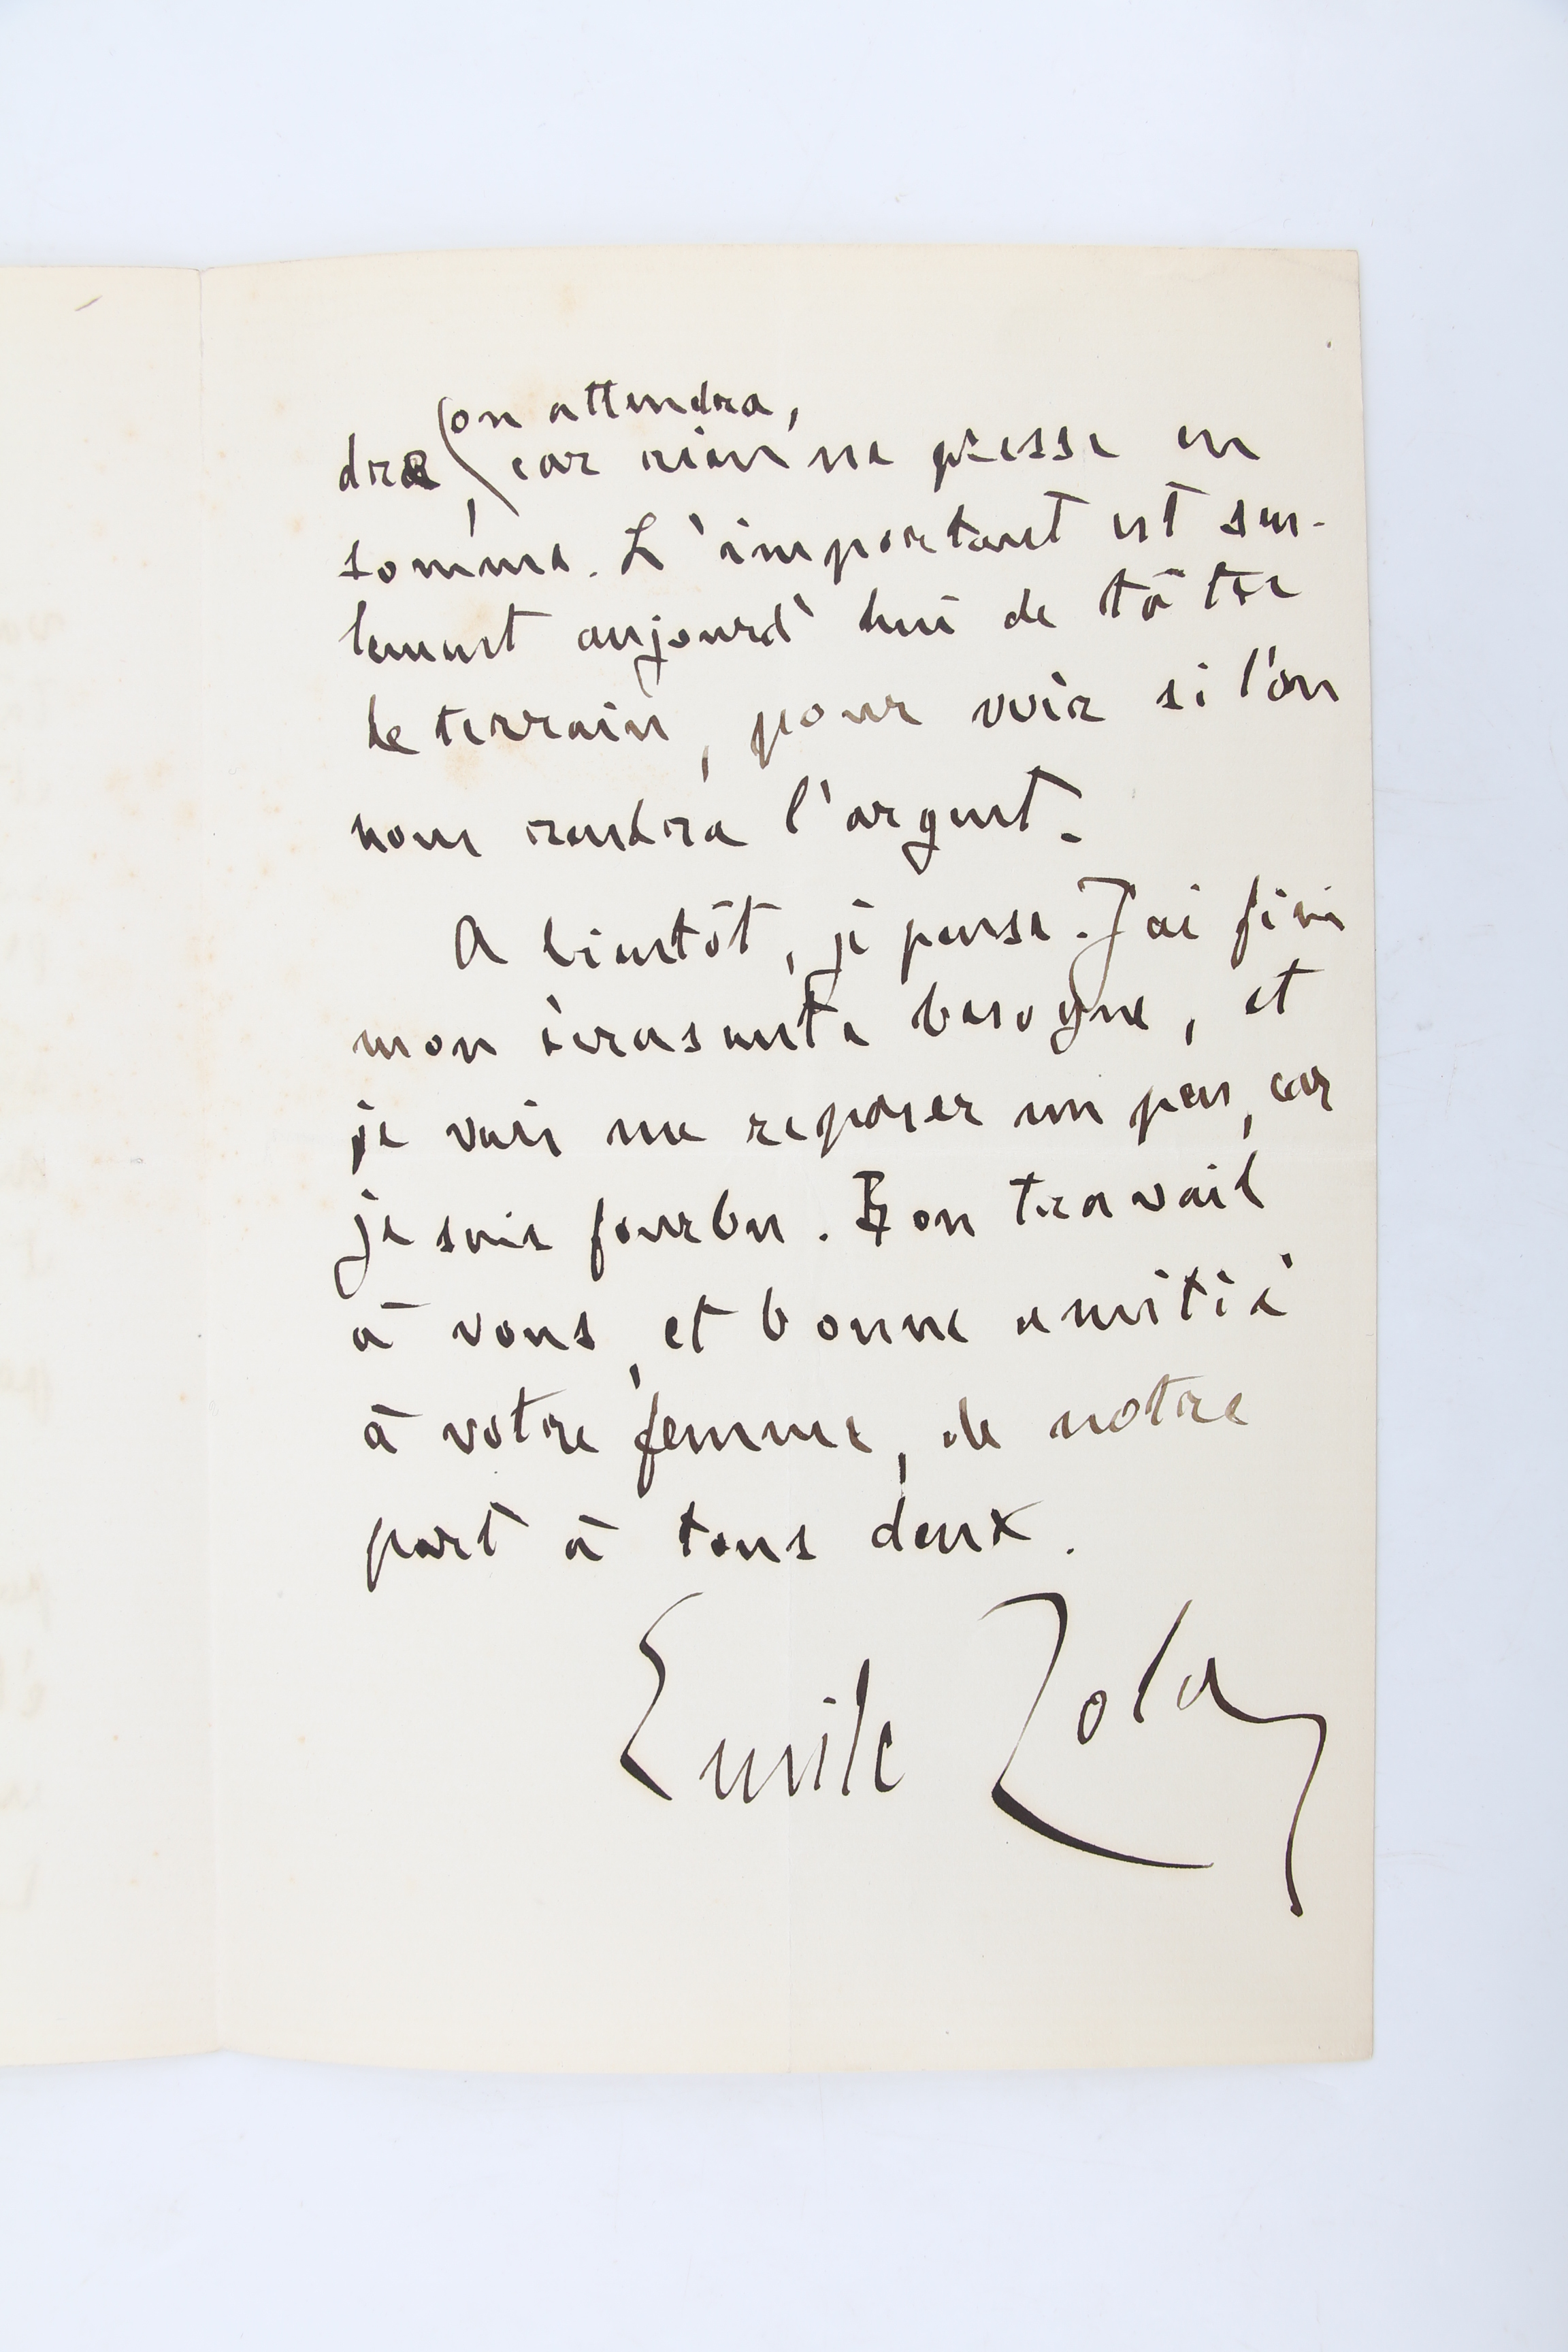 on attendra,
dre, car rien ne presse en
somme. L'important est seu-
lement aujourd'hui de tâter
le terrain, pour voir si l'on
nous rendra l'argent.
A bientôt, je pense. J'ai fini
mon écrasante besogne, et
je vais me reposer un peu, car
je suis fourbu. Bon travail
à vous, et bonne amitié
à votre femme, de notre
part à tous deux.
Emile Zola